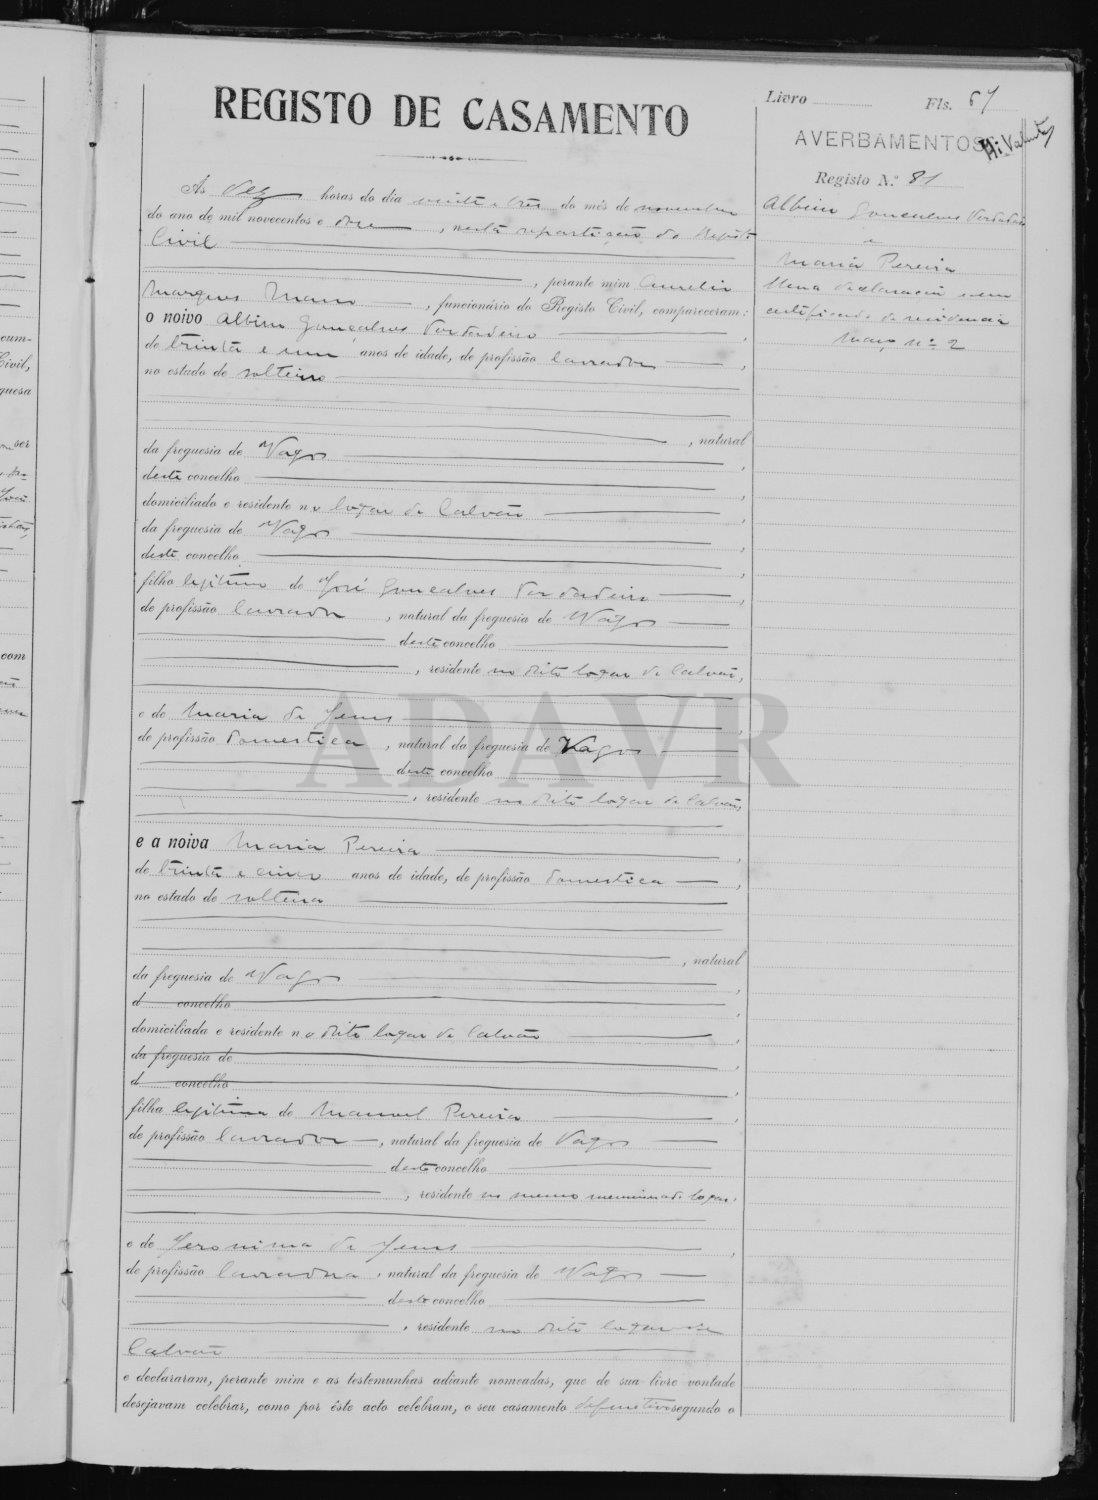 Livro Fls. 67
REGISTO DE CASAMENTO
AVERBAMENTOS
Registo N.º 81
Albino Gonçalves Verdadeiro
e
Maria Pereira
Uma declaração e um
certificado de residencia
Maço nº 2
Às dez horas do dia vinte e três do mês de novembro
do ano de mil novecentos e doze, nesta repartição do Registo
Civil
, perante mim Aurelio
Marques Mano, funcionário do Registo Civil, compareceram:
o noivo Albino Gonçalves Verdadeiro,
de trinta e um anos de idade, de profissão lavrador,
no estado de solteiro
, natural
da freguesia de Vagos,
deste concelho,
domiciliado e residente no logar de Calvão,
da freguesia de Vagos,
deste concelho,
filho legitimo de José Gonçalves Verdadeiro,
de profissão lavrador, natural da freguesia de Vagos
deste concelho
, residente no dito logar de Calvão,
e de Maria de Jesus,
de profissão domestica, natural da freguesia de Vagos
deste concelho
, residente no dito logar de Calvão,
e a noiva Maria Pereira,
de trinta e cinco anos de idade, de profissão domestica,
no estado de solteira
, natural
da freguesia de Vagos,
d concelho,
domiciliada e residente no dito logar de Calvão,
da freguesia de,
d concelho,
filha legitima de Manuel Pereira,
de profissão lavrador, natural da freguesia de Vagos
deste concelho
, residente no mesmo mencionado logar,
e de Jeronima de Jesus,
de profissão lavradora, natural da freguesia de Vagos
deste concelho
, residente no dito logar de
Calvão
e declararam, perante mim e as testemunhas adiante nomeadas, que de sua livre vontade
desejavam celebrar, como por êste acto celebram, o seu casamento definitivo segundo o
ADAVR